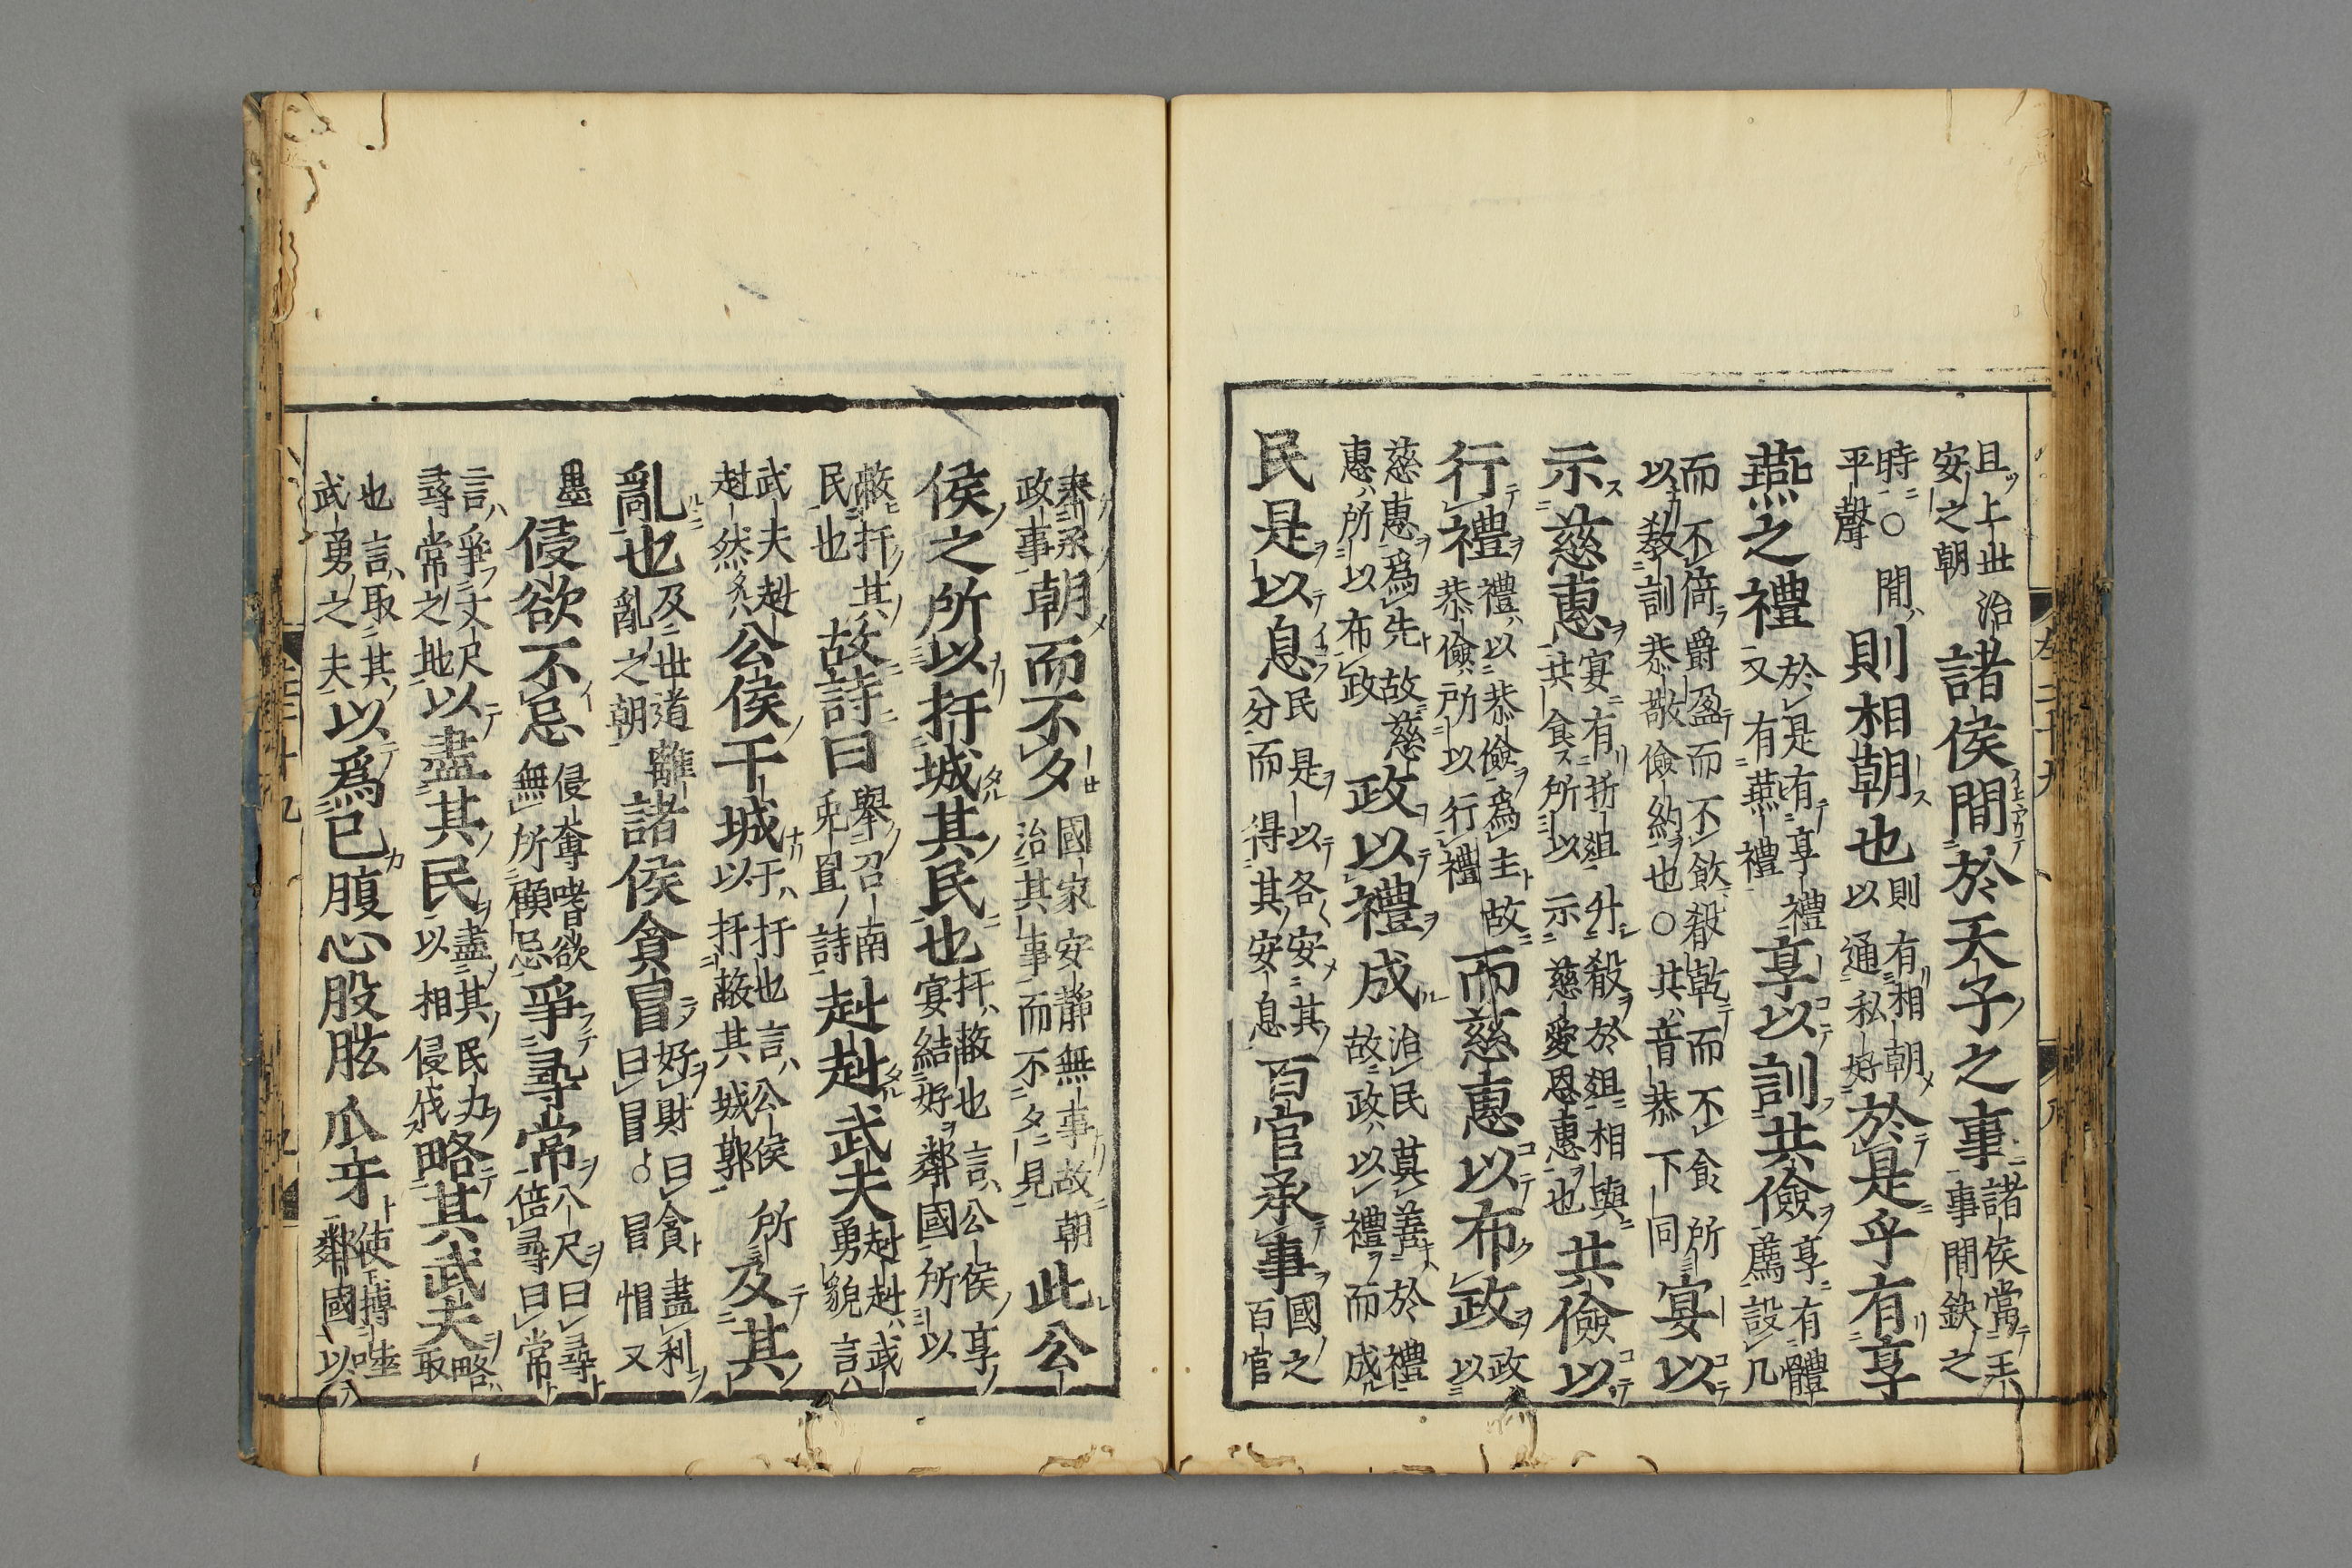 且上世治安之朝諸侯間於天子之事諸侯當王事間缺之
時○間平聲則相朝也則有相朝以通私好於是乎有享
燕之禮於是有享禮又有燕禮享以訓共儉享有體薦設几
而不倚爵盈而不飲殽乾而不食所以敎訓恭敬儉約也○共音恭下同宴以
示慈惠宴有折俎升殽於俎相與共食所以示慈愛恩惠也共儉以
行禮禮以恭儉爲主故恭儉所以行禮而慈惠以布政政以
慈惠爲先故慈惠所以布政政以禮成治民莫善於禮故政以禮而成
民是以息民是以各安其分而得其安息百官承事國之百官
奉承政事朝而不夕國家安靜無事故朝治其事而不夕見此公
侯之所以扞城其民也扞蔽也言公侯享宴結好鄰國所以
蔽扞其民也故詩曰舉召南兎罝詩赳赳武夫赳赳武勇貌言
武夫赳赳然公侯干城干扞也言公侯以扞蔽其城郭所及其
亂也及世道離亂之朝諸侯貪冒好財曰貪盡利曰冒○冒帽又
墨侵欲不忌侵奪嗜欲無所顧忌爭尋常八尺曰尋倍尋曰常
言爭丈尺尋常之地以盡其民盡其民力以相侵伐略其武夫略取
也言取其武勇之夫以爲己腹心股肱爪牙使搏噬鄰國以